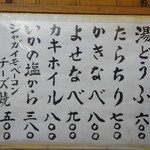 湯どうふ 六〇〇
たらちり 七〇〇
かきなべ 八〇〇
よせなべ 九〇〇
カキホイル 八〇〇
いかの塩から 三八〇
ジャガイモベーコン
チーズ焼 五〇〇